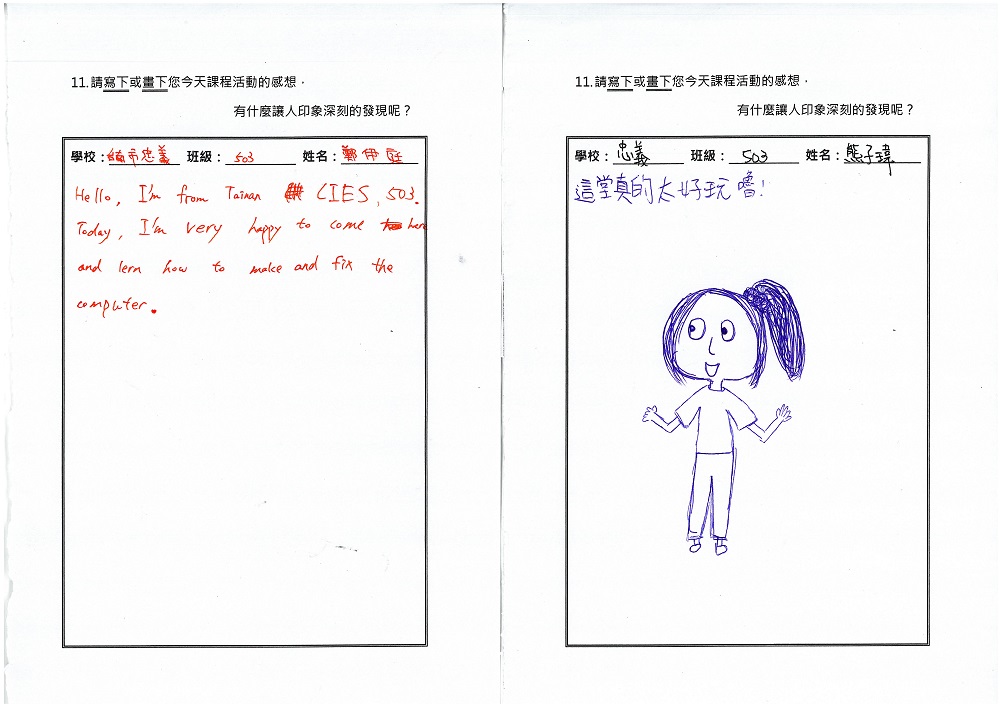 11.請寫下或畫下您今天課程活動的感想，
有什麼讓人印象深刻的發現呢？
學校：市忠義 班級：503 姓名：鄭伊庭
Hello, I'm from Tainan CIES, 503.
Today, I'm very happy to come here
and lern how to make and fix the
computer.
11.請寫下或畫下您今天課程活動的感想，
有什麼讓人印象深刻的發現呢？
學校：忠義 班級：503 姓名：熊子瑋
這堂真的太好玩嚕!